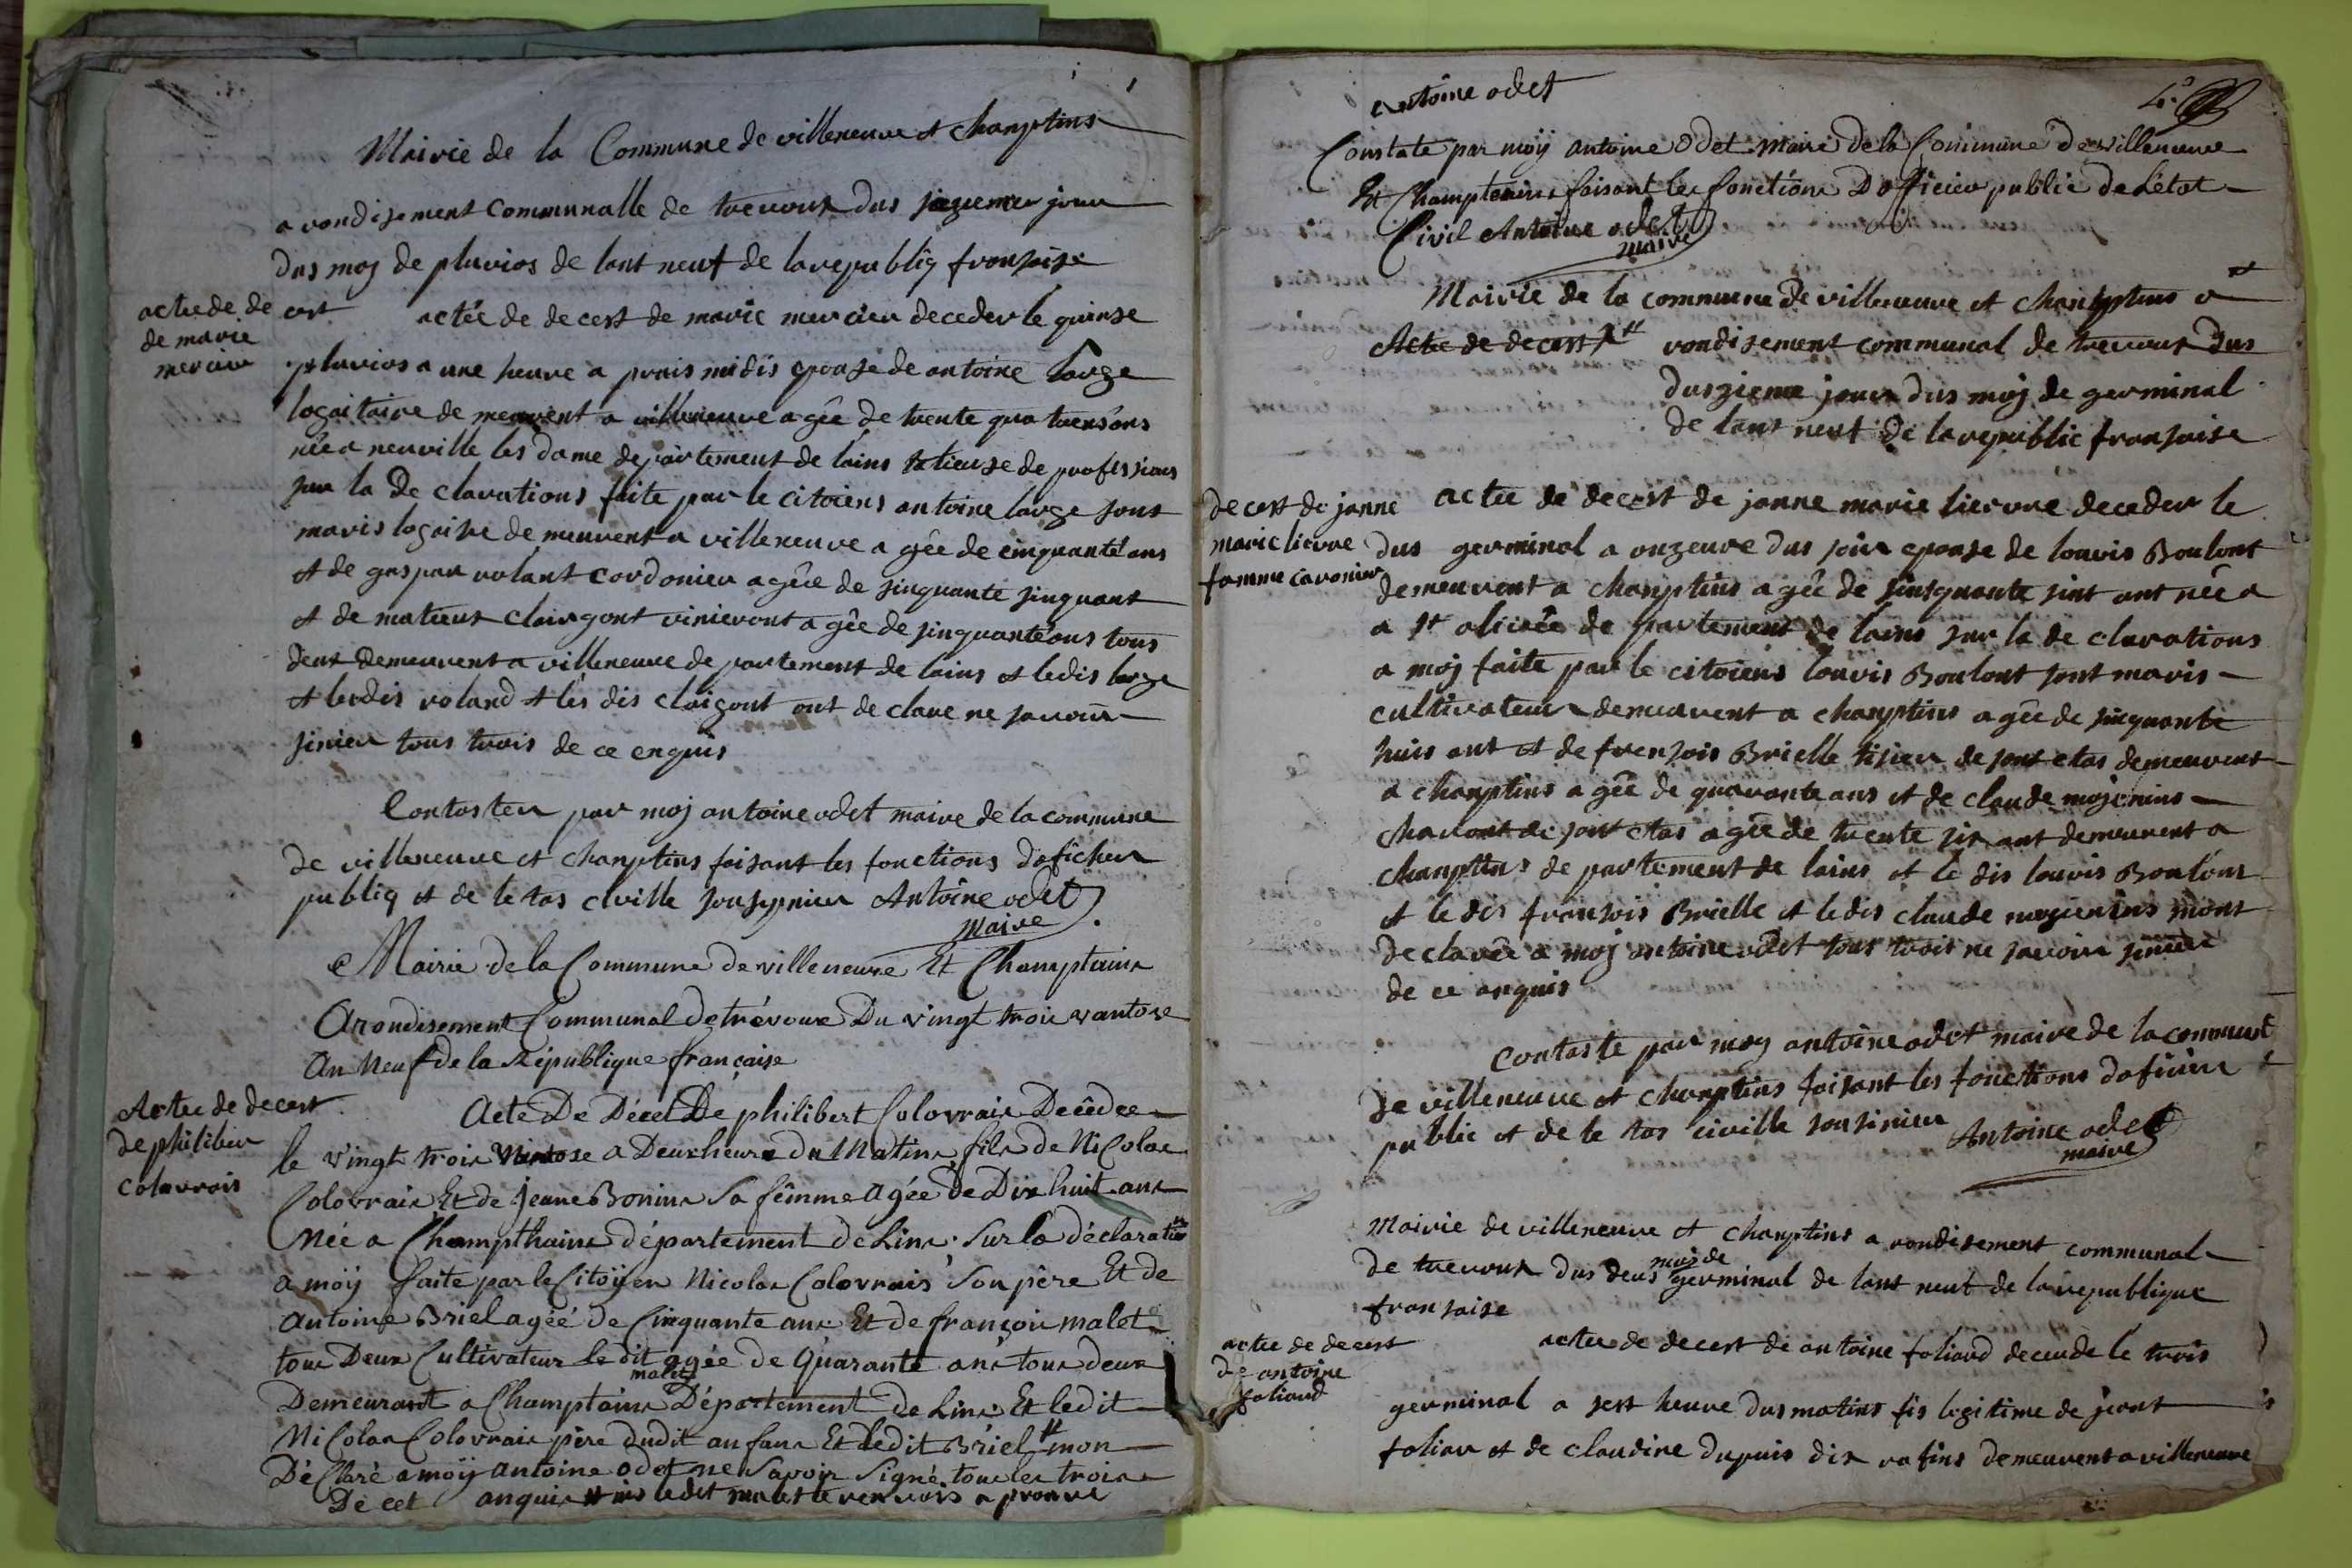 Mairie de la Commune de villeneuve et chanptins
a rondisement communalle de trevoux dus siezieme jour
dus moj de pluvios de lant neuf de la republiq fransaise
actee de de cest
de marie
mercier
actée de decest de marie mercier deceder le quinse
pluvios a une heure a prais midis epouse de antoine large
logaitaire de meurent a villeneuve agêe de trente quatrensons
née a neuville les dame departement de lains telieuse de professions
sur la de clarations faite par le citoiens antoine large sont
maris logaire de meurent a villeneuve a gêe de cinquante ans
et de gaspar volant cordonier agêe de sinquante sinquant
et de matieux claingont vinieront a gêe de sinquanteons tous
deux demeurent a villeneuve de partement de lains et ledis large
et ledis voland et lés dis claigont ont de clare ne savoir
sinier tous trois de ce enquis
Contaster par moj antoine odet maire de la commune
de villeneuve et chanptins faisant les fonctions dofichier
publiq et de le tas civille sousignier Antoine odet
maire
Mairie de la Commune de villeneuve Et Champtains
Arondisement Communal de trévoux Du vingt trois vantose
An Neuf de la République française
Actee de decest
de philiber
colovrais
Acte De Décet De philibert Colovrais Decêdee
le vingt trois Ventose a Deux heure du Matins fils de Nicolas
Colovrais Et de Jeanne Bonins Sa fémme Agée de Dix huit ans
Née a Champthains département de Lins. Sur la déclaration
a moÿ faite par le Citoÿen Nicolas Colovrais Son père Et de
Antoine Briel agéé de Cinquante ans Et de françois malet
tous Deux Cultivateur le dit malet agée de Quarante ans tous deux
Demeurant a Champtains Département de Lins Et ledit
Nicolas Colovrais père dudit anfans Et ledit Briel # mon
Déclaré a moÿ Antoine odet ne Savoir Signé tous les trois
De cet anquis # ledit malet le renvois a prouve
Antoine odet
4.
Constate par moÿ Antoine Odet maire de la Commune de villeneuve
Et Champteins faisant les fonctions D'officier public de L'état
Civil Antoine odet
maire
Mairie de la commune de villeneuve et chanptins a
Actee de decest
rondisement communal de trevoux dus
duszieme jour dus moj de germinal
de lant neuf de la republic fransaise
decest de janne
marie lievre
famme
actee de decest de janne marie lievre deceder le
dus germinal a onzeure dus soir epouse de louvis Boulont
demeurent a chanptins agêe de sinsquante sint ant née a
a st olivêe de partement de lains sur la de clarations
a moj faite par le citoiens louvis Boulont sont maris
cultivateur demeurent a chanptins agêe de sinquante
huis ant et de fransois Brielle tisier de sont etas demeurent
a chanptins agêe de quarante ans et de claude mojenins
charont de sont etas agêe de trente sis ant demeurent a
chanptins de partement de lains et le dis louvis Boulons
et le dis fransois Brielle et ledis claude mogienins mont
declarêe a moj antoine odet tous trois ne savoir sinier
de ce anquis
Contaste par moy antoine odet maire de la commune
de villeneuve et chanptins faisant les fonctions doficier
public et de le tas civille sousinier Antoine odet
maire
Mairie de villeneuve et chanptins a rondisement communal
de trevoux dus deus mois de germinal de lant neuf de la republique
fransaise
actee de decest
de antoine
foliand
actee de decest de antoine foliand decende le trois
germinal a sest heure dus matins fis legitime de jeant
folian et de claudine dupuis dis rafins demeurent a villeneuve